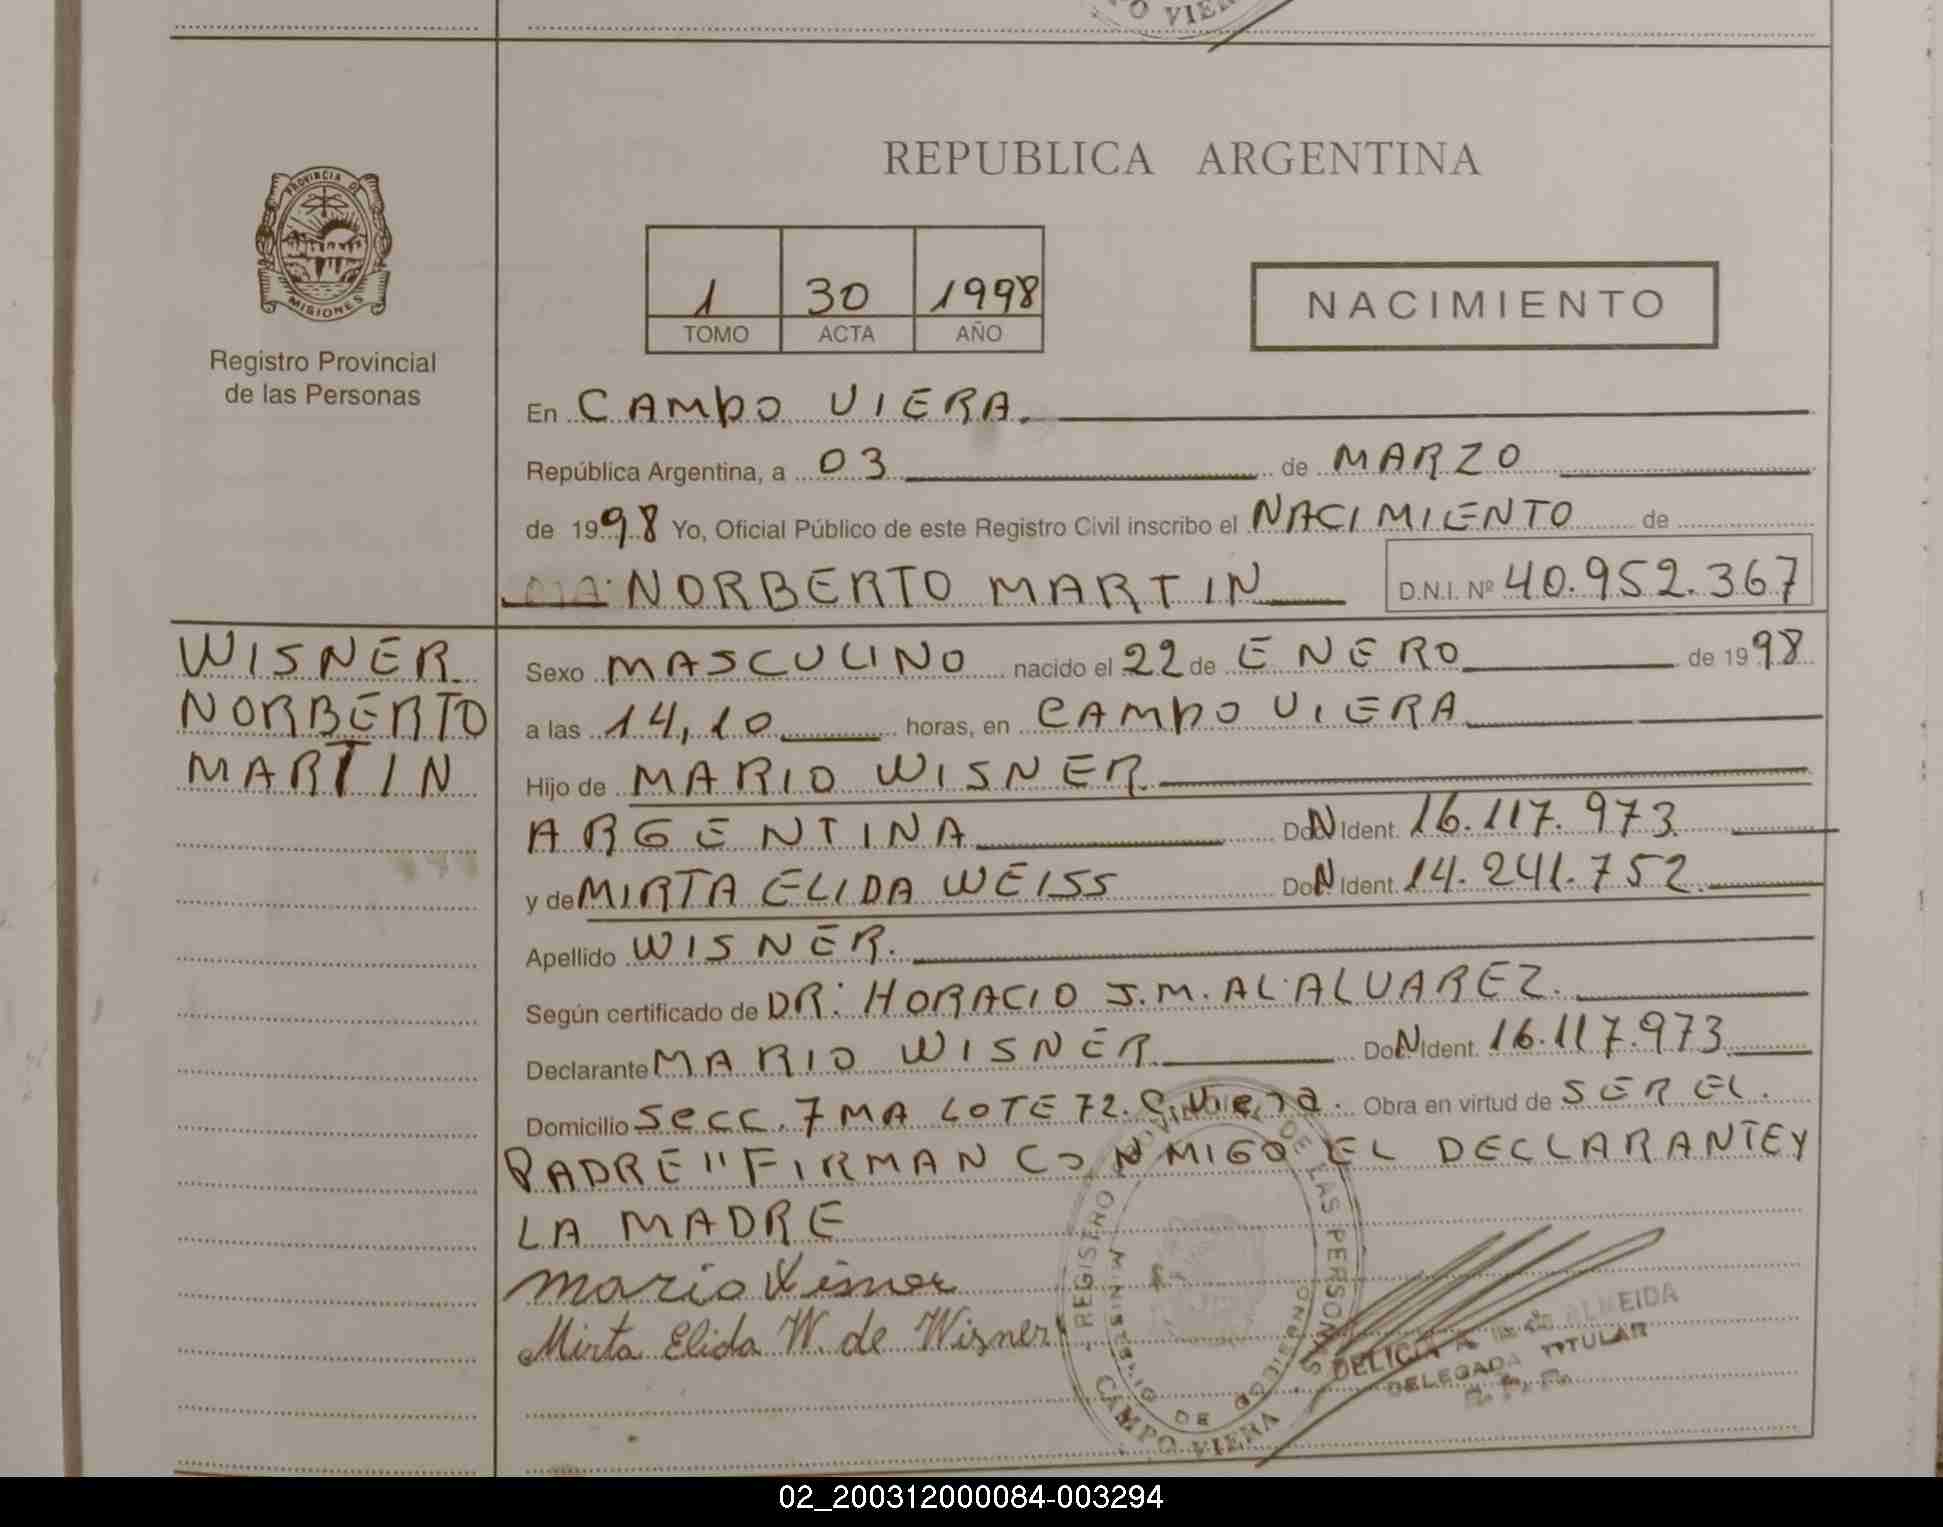 PO VIER
REPUBLICA ARGENTINA
PROVINCIA DE
MISIONES
Registro Provincial
de las Personas
1 30 1998
TOMO ACTA AÑO
NACIMIENTO
En CAMPO VIERA.
República Argentina, a 03 de MARZO
de 1998 Yo, Oficial Público de este Registro Civil inscribo el NACIMIENTO de
NORBERTO MARTIN D.N.I. Nº 40.952.367
WISNER
NORBERTO
MARTIN
Sexo MASCULINO nacido el 22 de ENERO de 1998
a las 14,10 horas, en CAMPO VIERA
Hijo de MARIO WISNER
ARGENTINA DocN Ident. 16.117.973
y de MIRTA ELIDA WEISS DocN Ident. 14.241.752
Apellido WISNER.
Según certificado de DR: HORACIO J.M. AL ALVAREZ.
Declarante MARIO WISNER DocN Ident. 16.117.973
Domicilio SECC. 7MA LOTE 72. C. Viera. Obra en virtud de SER EL.
PADRE" FIRMAN CONMIGO EL DECLARANTE Y
LA MADRE
Mario Wisner
Mirta Elida W. de Wisner
REGISTRO PROVINCIAL DE LAS PERSONAS
MINISTERIO DE GOBIERNO
CAMPO VIERA
DELICIA A. DE ALMEIDA
DELEGADA TITULAR
02_200312000084-003294